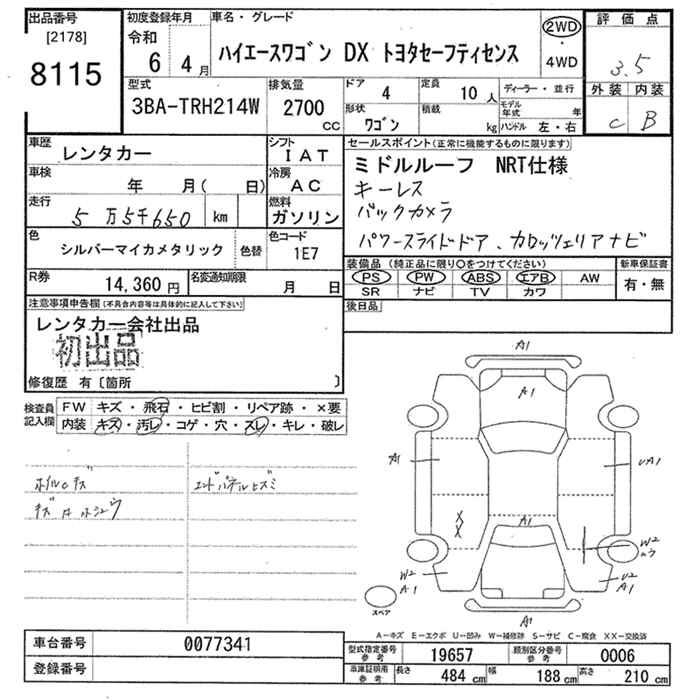 出品番号
[2178]
8115
初度登録年月
令和
6 4 月
車名・グレード
ハイエースワゴン DX トヨタセーフティセンス
2WD
・
4WD
評価点
3.5
外装 内装
C B
型式
3BA-TRH214W
排気量
2700
CC
ドア
4
形状
ワゴン
定員
10 人
積載
kg
ディーラー・並行
モデル年式 年
ハンドル 左・右
車歴
レンタカー
シフト
IAT
車検
年 月( 日)
冷房
AC
走行
5 万 5千650 km
燃料
ガソリン
色
シルバーマイカメタリック
色替
色コード
1E7
R券
14,360 円
名変通知期限
月 日
セールスポイント(正常に機能するものに限ります)
ミドルルーフ NRT仕様
キーレス
バックカメラ
パワースライドドア、カロッツェリアナビ
装備品(純正品に限り○をつけてください)
PS PW ABS エアB AW
SR ナビ TV カワ
新車保証書
有・無
後日品
注意事項申告欄(不具合内容等は具体的に記入して下さい)
レンタカー会社出品
初出品
修復歴 有〔箇所 〕
検査員
記入欄
FW キズ・飛石・ヒビ割・リペア跡・×要
内装 キズ・汚レ・コゲ・穴・スレ・キレ・破レ
ホイルcキズ
エンドパネルヒズミ
キズ サホシュウ
A1
A1
A1
UA1
A1
W2
A1
W2
U2
A1
A1
スペア
A-キズ E-エクボ U-凹み W-補修跡 S-サビ C-腐食 XX-交換済
車台番号
0077341
登録番号
型式指定番号
参考
19657
類別区分番号
参考
0006
車庫証明用
参考
長さ 484 cm
幅 188 cm
高さ 210 cm